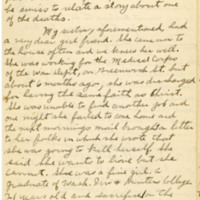 be amiss to relate a story about one
of the deaths.
My sister, aforementioned, had
a very dear girl friend. She came over to
the house often and we knew her well.
She was working for the Medical Corps
of the War dept., on Greenwich St. but
about 6 months ago, she was discharged
for having the same faith as Christ.
She was unable to find another job and
one night she failed to come home and
the next mornings mail brought a letter
to her folks in which she wrote that
she was going to kill herself. She
said she wants to live but she
cannot. She was a fine girl, a
graduate of Wash. Irv. & Hunter College
21 years old and sacrificed for the